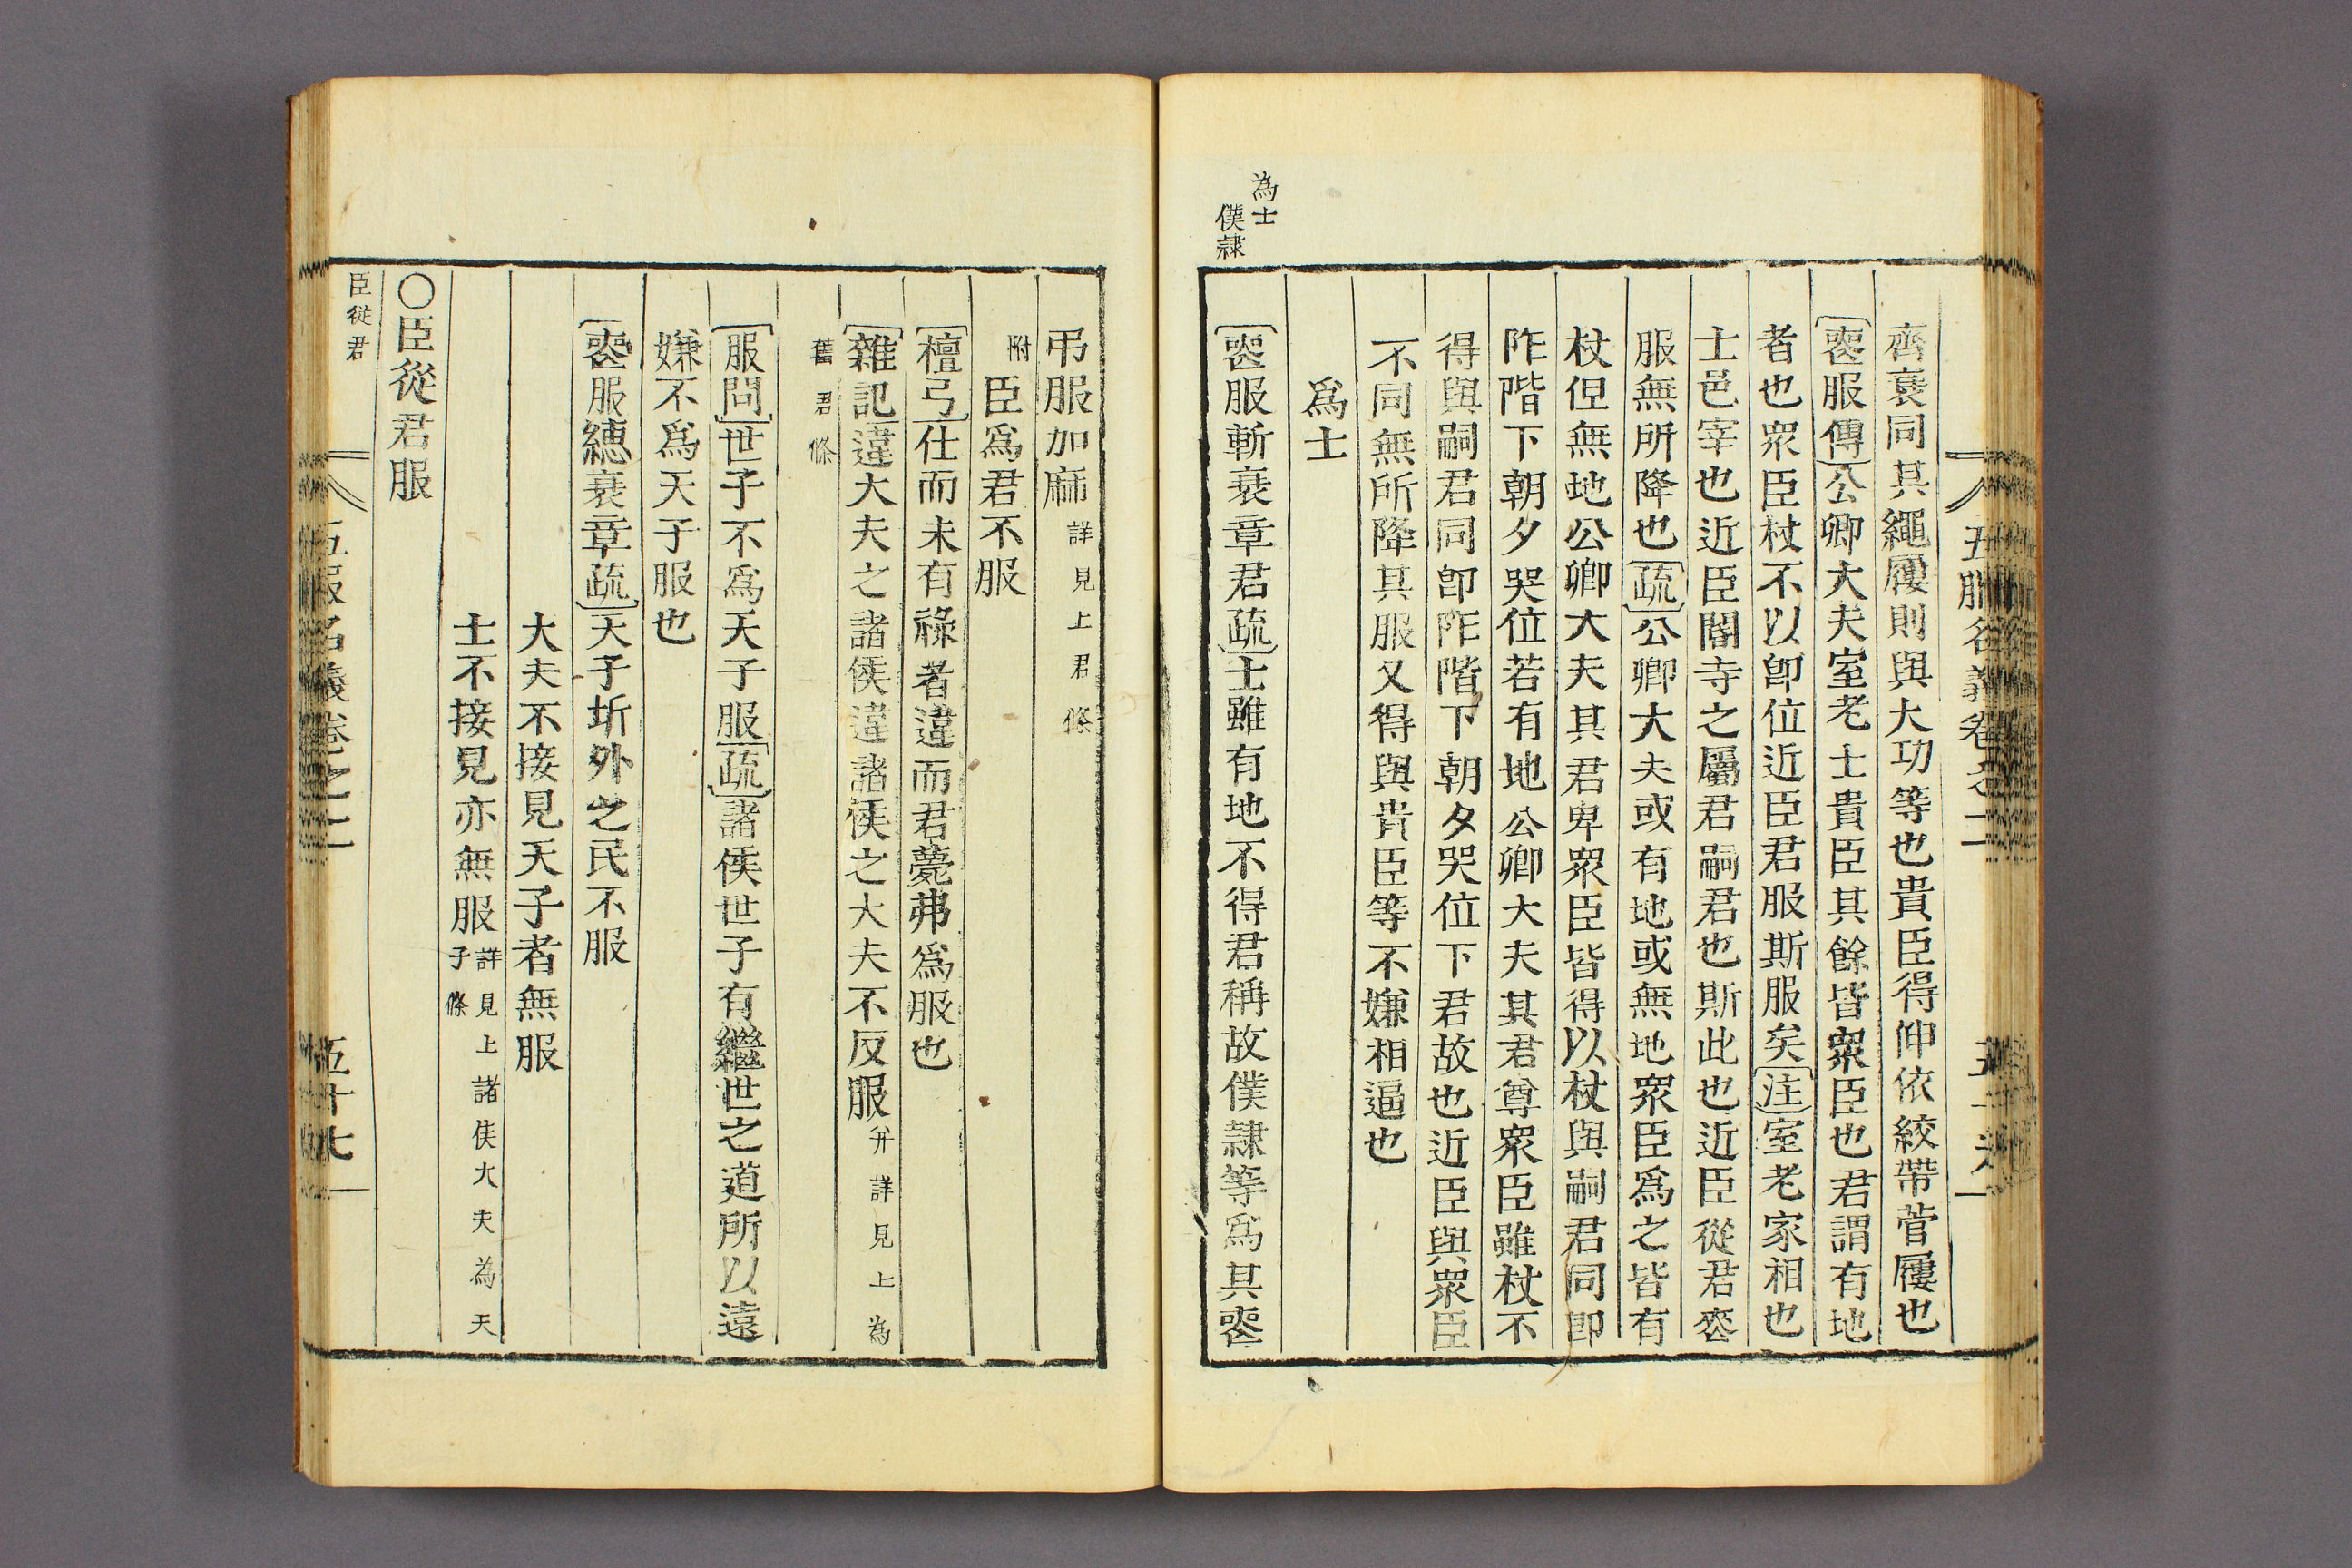 五服名義卷之二
齊衰同其繩屨則與大功等也貴臣得伸依絞帶菅屨也
喪服傳公卿大夫室老士貴臣其餘皆衆臣也君謂有地
者也衆臣杖不以卽位近臣君服斯服矣注室老家相也
士邑宰也近臣閽寺之屬君嗣君也斯此也近臣從君喪
服無所降也疏公卿大夫或有地或無地衆臣爲之皆有
杖但無地公卿大夫其君卑衆臣皆得以杖與嗣君同卽
阼階下朝夕哭位若有地公卿大夫其君尊衆臣雖杖不
得與嗣君同卽阼階下朝夕哭位下君故也近臣與衆臣
不同無所降其服又得與貴臣等不嫌相逼也
爲士
為士
僕隷
喪服斬衰章君疏士雖有地不得君稱故僕隷等爲其喪
弔服加麻詳見上君條
附臣爲君不服
檀弓仕而未有祿者違而君薨弗爲服也
雜記違大夫之諸侯違諸侯之大夫不反服并詳見上為
舊君條
服問世子不爲天子服疏諸侯世子有繼世之道所以遠
嫌不爲天子服也
喪服繐衰章疏天子圻外之民不服
大夫不接見天子者無服
士不接見亦無服詳見上諸侯大夫為天
子條
〇臣從君服
臣從君
五服名義卷之二
五十七